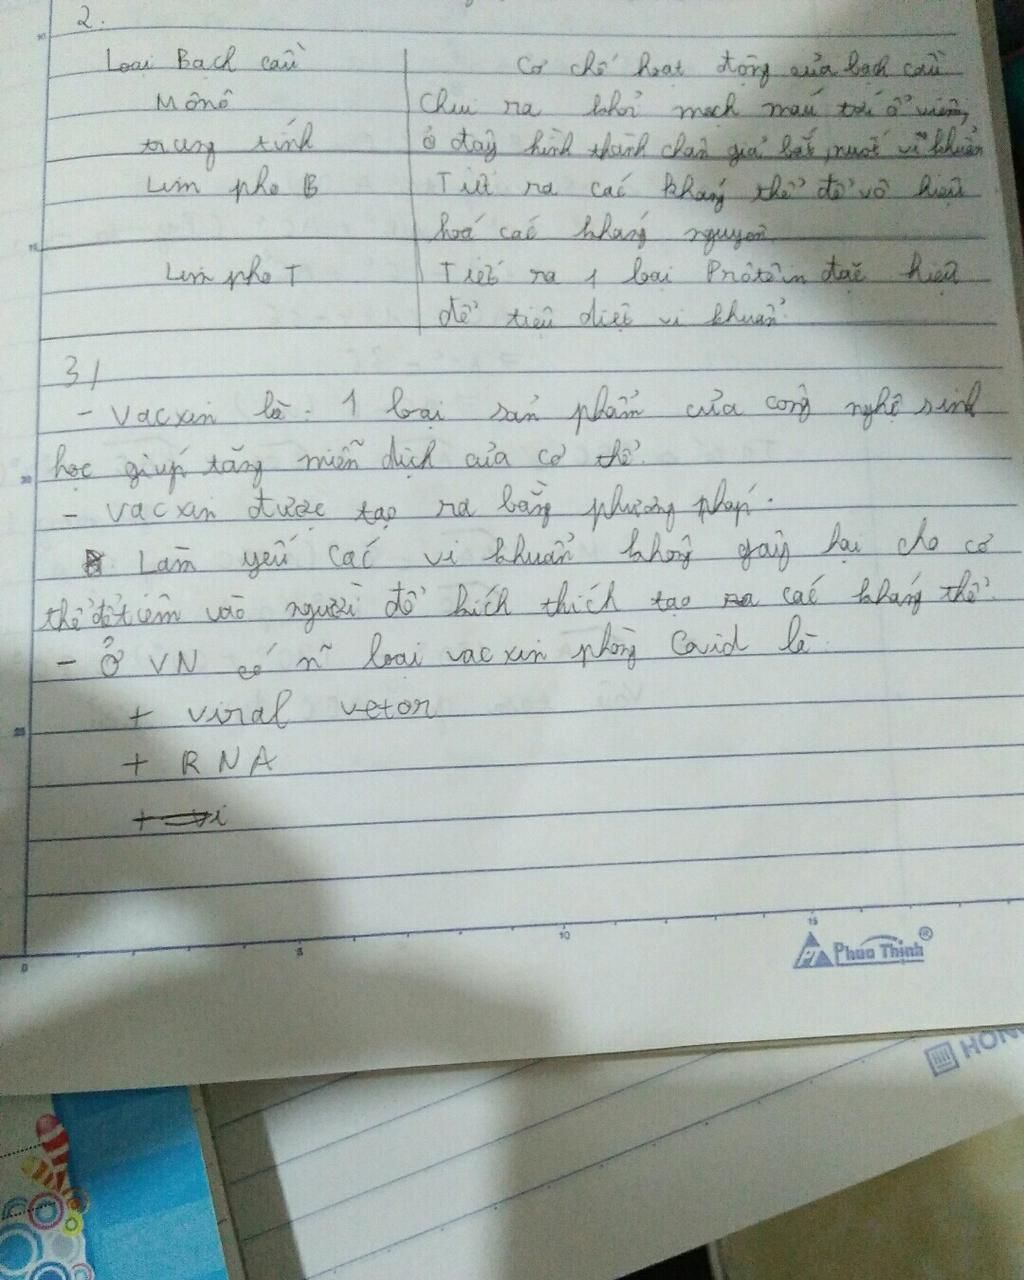 2.
Loại Bạch cầu | Cơ chế hoạt động của bạch cầu
Mônô | Chui ra khỏi mạch máu tới ổ viêm,
trung tính | ở đây hình thành chân giả bắt, nuốt vi khuẩn
Limpho B | Tiết ra các kháng thể để vô hiệu
hoá các kháng nguyên
Limpho T | Tiết ra 1 loại Prôtêin đặc hiệu
để tiêu diệt vi khuẩn.
3/
- Vacxin là: 1 loại sản phẩm của công nghệ sinh
học giúp tăng miễn dịch của cơ thể.
- Vacxin được tạo ra bằng phương pháp:
Làm yếu các vi khuẩn không gây hại cho cơ
thể để tiêm vào người để kích thích tạo ra các kháng thể.
- Ở VN có n~ loại vacxin phòng Covid là:
+ viral vetor
+ RNA
Phuc Thinh ®
0 5 10 15
20
25